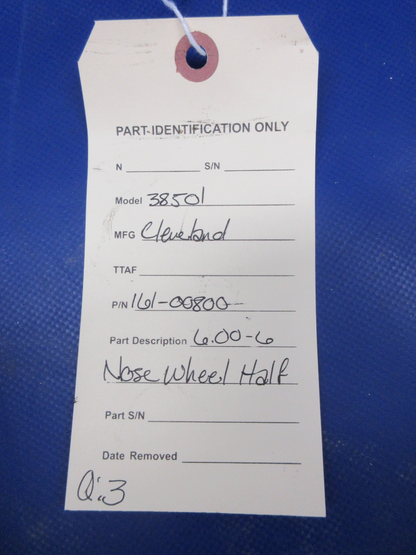 PART-IDENTIFICATION ONLY
N S/N
Model 38501
MFG Cleveland
TTAF
P/N 161-00800
Part Description 6.00-6
Nose Wheel Half
Part S/N
Date Removed
Q:3